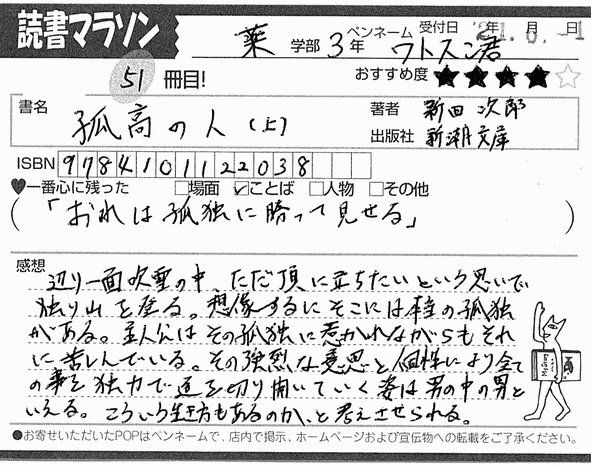 読書マラソン
薬 学部 3年 ペンネーム ワトスン君 受付日 年 月 日
51 冊目! おすすめ度 ★★★★☆
書名 孤高の人(上) 著者 新田 次郎
出版社 新潮文庫
ISBN 9784101122038
♥一番心に残った □場面 ☑ことば □人物 □その他
(「おれは孤独に勝って見せる」)
感想
辺り一面吹雪の中、ただ頂に立ちたいという思いで
独り山を登る。想像するにそこには本当の孤独
がある。主人公はその孤独に惹かれながらもそれ
に苦しんでいる。その強烈な意思と個性により全て
の事を独力で道を切り開いていく姿は男の中の男と
いえる。こういう生き方もあるのか、と考えさせられる。
●お寄せいただいたPOPはペンネームで、店内で掲示、ホームページおよび宣伝物への転載をご了承ください。